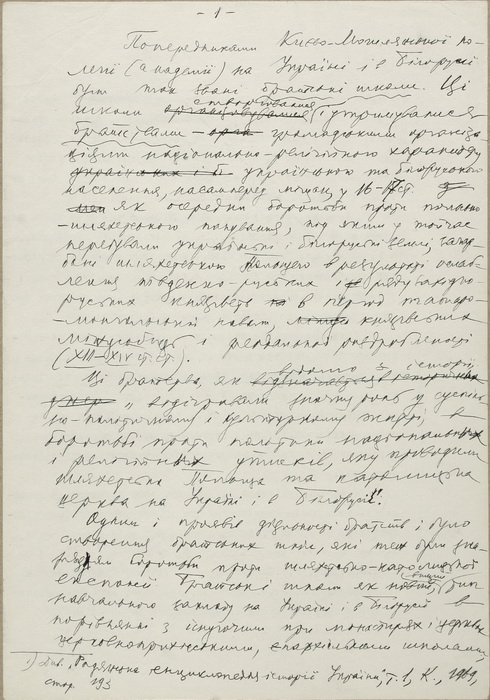 - 1 -
Попередниками Києво-Могилянської ко-
легії (академії) на Україні і в Білорусії
були так звані братські школи. Ці
школи організовувалися створювалися і утримувалися
братствами — громадськими організа-
ціями національно-релігійного характеру
українського та білоруського
населення, насамперед міщан, у 16-17 ст.
як осередки боротьби проти польсько
-шляхетського панування, під яким у той час
перебували українські і білоруські землі, загар-
бані шляхетською Польщею в результаті ослаб-
лення південно-руських і
руських князівств в період татаро-
-монгольської навали, князівських
міжусобиць і феодальної роздробленості
(XIII-XIV ст. ст.).
Ці братства, як відомо з історії
відігравали значну роль у суспіль-
но-політичному і культурному житті, в
боротьбі проти політики національних
і релігійних утисків, яку проводили
шляхетська Польща та
церква на Україні і в Білорусії¹.
Одним і проявів діяльності братств і було
створення братських шкіл, які теж були зна-
ряддям боротьби проти шляхетсько-католицької
експансії. Братські школи як новий тип
навчального закладу на Україні і в Білорусії в
порівнянні з існуючими при монастирях і церквах
церковноприходськими, єпархіальними школами,
1) Див. Радянська енциклопедія історії України, т. 1, К., 1969,
стор. 193